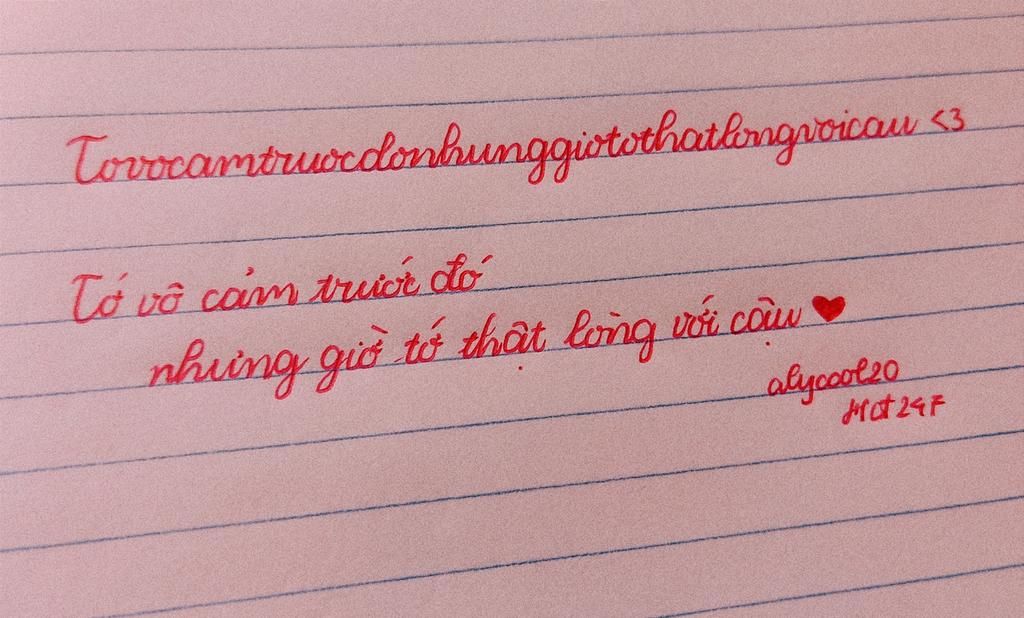 Tovocamtruocdonhunggiotothatlongvoicau <3
Tớ vô cảm trước đó
nhưng giờ tớ thật lòng với cậu ♥
alycool20
Hot247